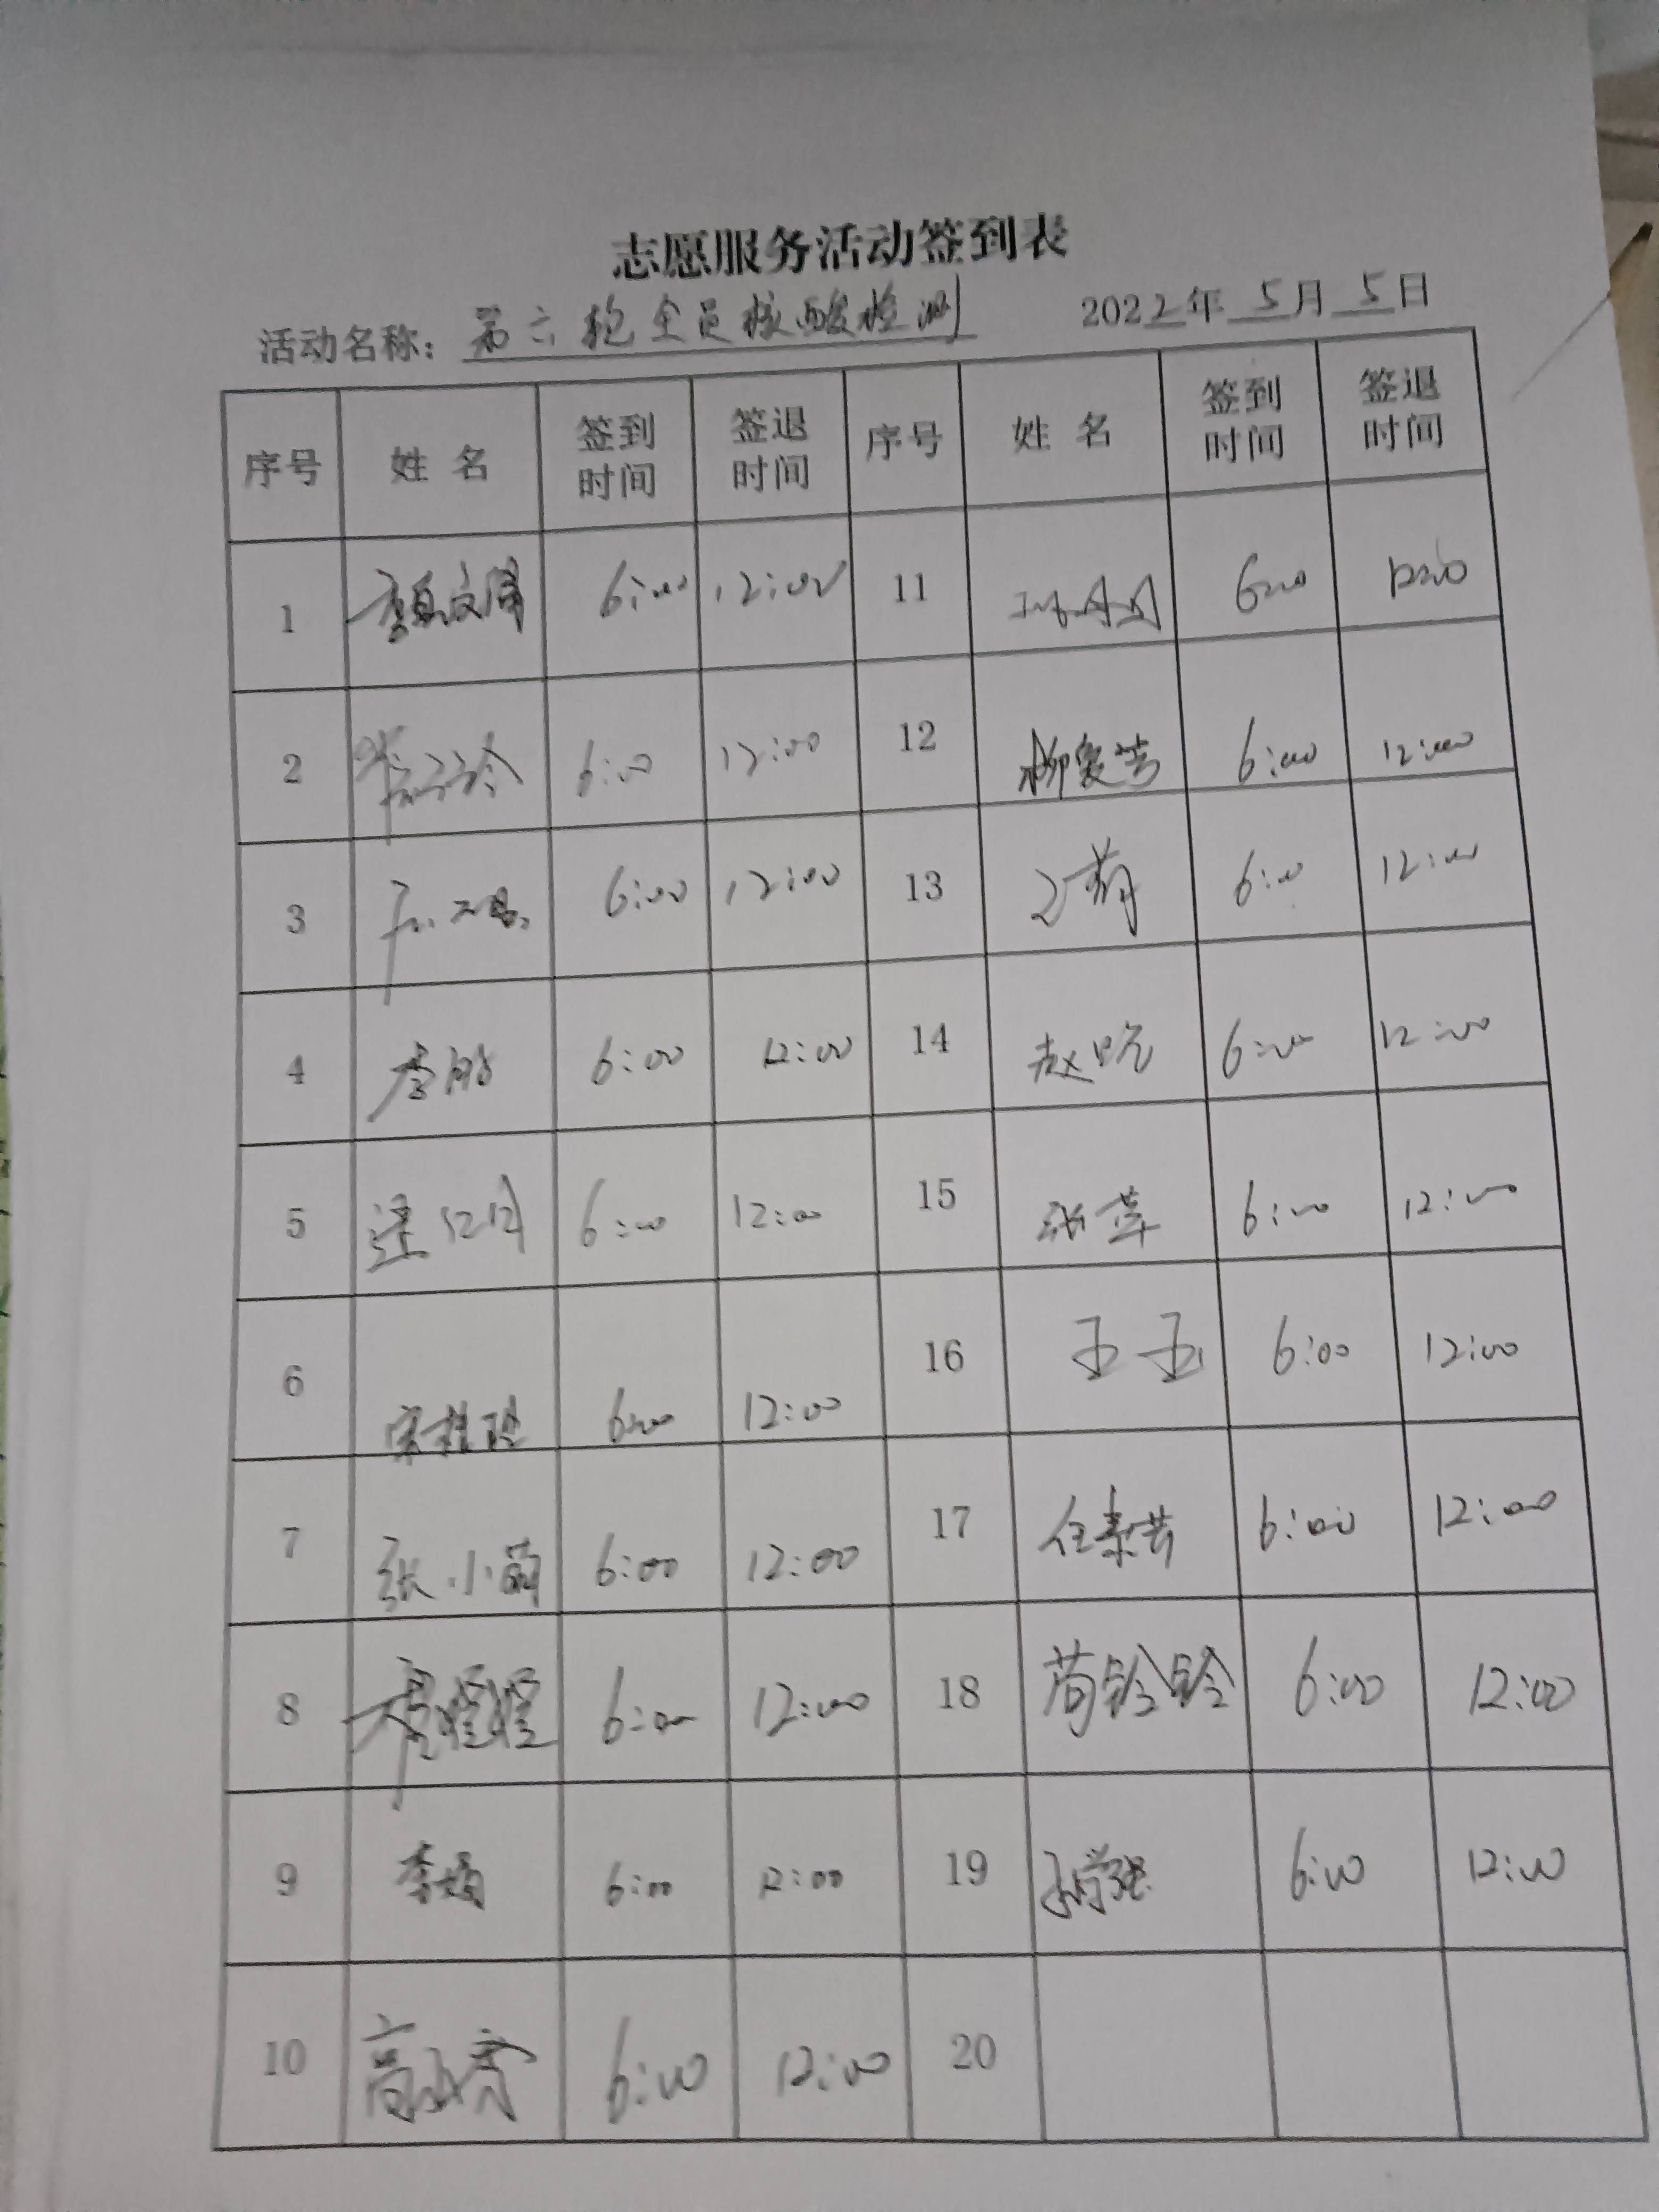 志愿服务活动签到表
活动名称：第六轮全员核酸检测 2022年5月5日
序号 姓名 签到时间 签退时间 序号 姓名 签到时间 签退时间
1 6:00 12:00 11 6:00 12:00
2 6:00 12:00 12 柳爱芳 6:00 12:00
3 6:00 12:00 13 6:00 12:00
4 6:00 12:00 14 6:00 12:00
5 6:00 12:00 15 张萍 6:00 12:00
6 6:00 12:00 16 王玉 6:00 12:00
7 张小萌 6:00 12:00 17 任素芸 6:00 12:00
8 6:00 12:00 18 苟铃铃 6:00 12:00
9 李娟 6:00 12:00 19 6:00 12:00
10 6:00 12:00 20